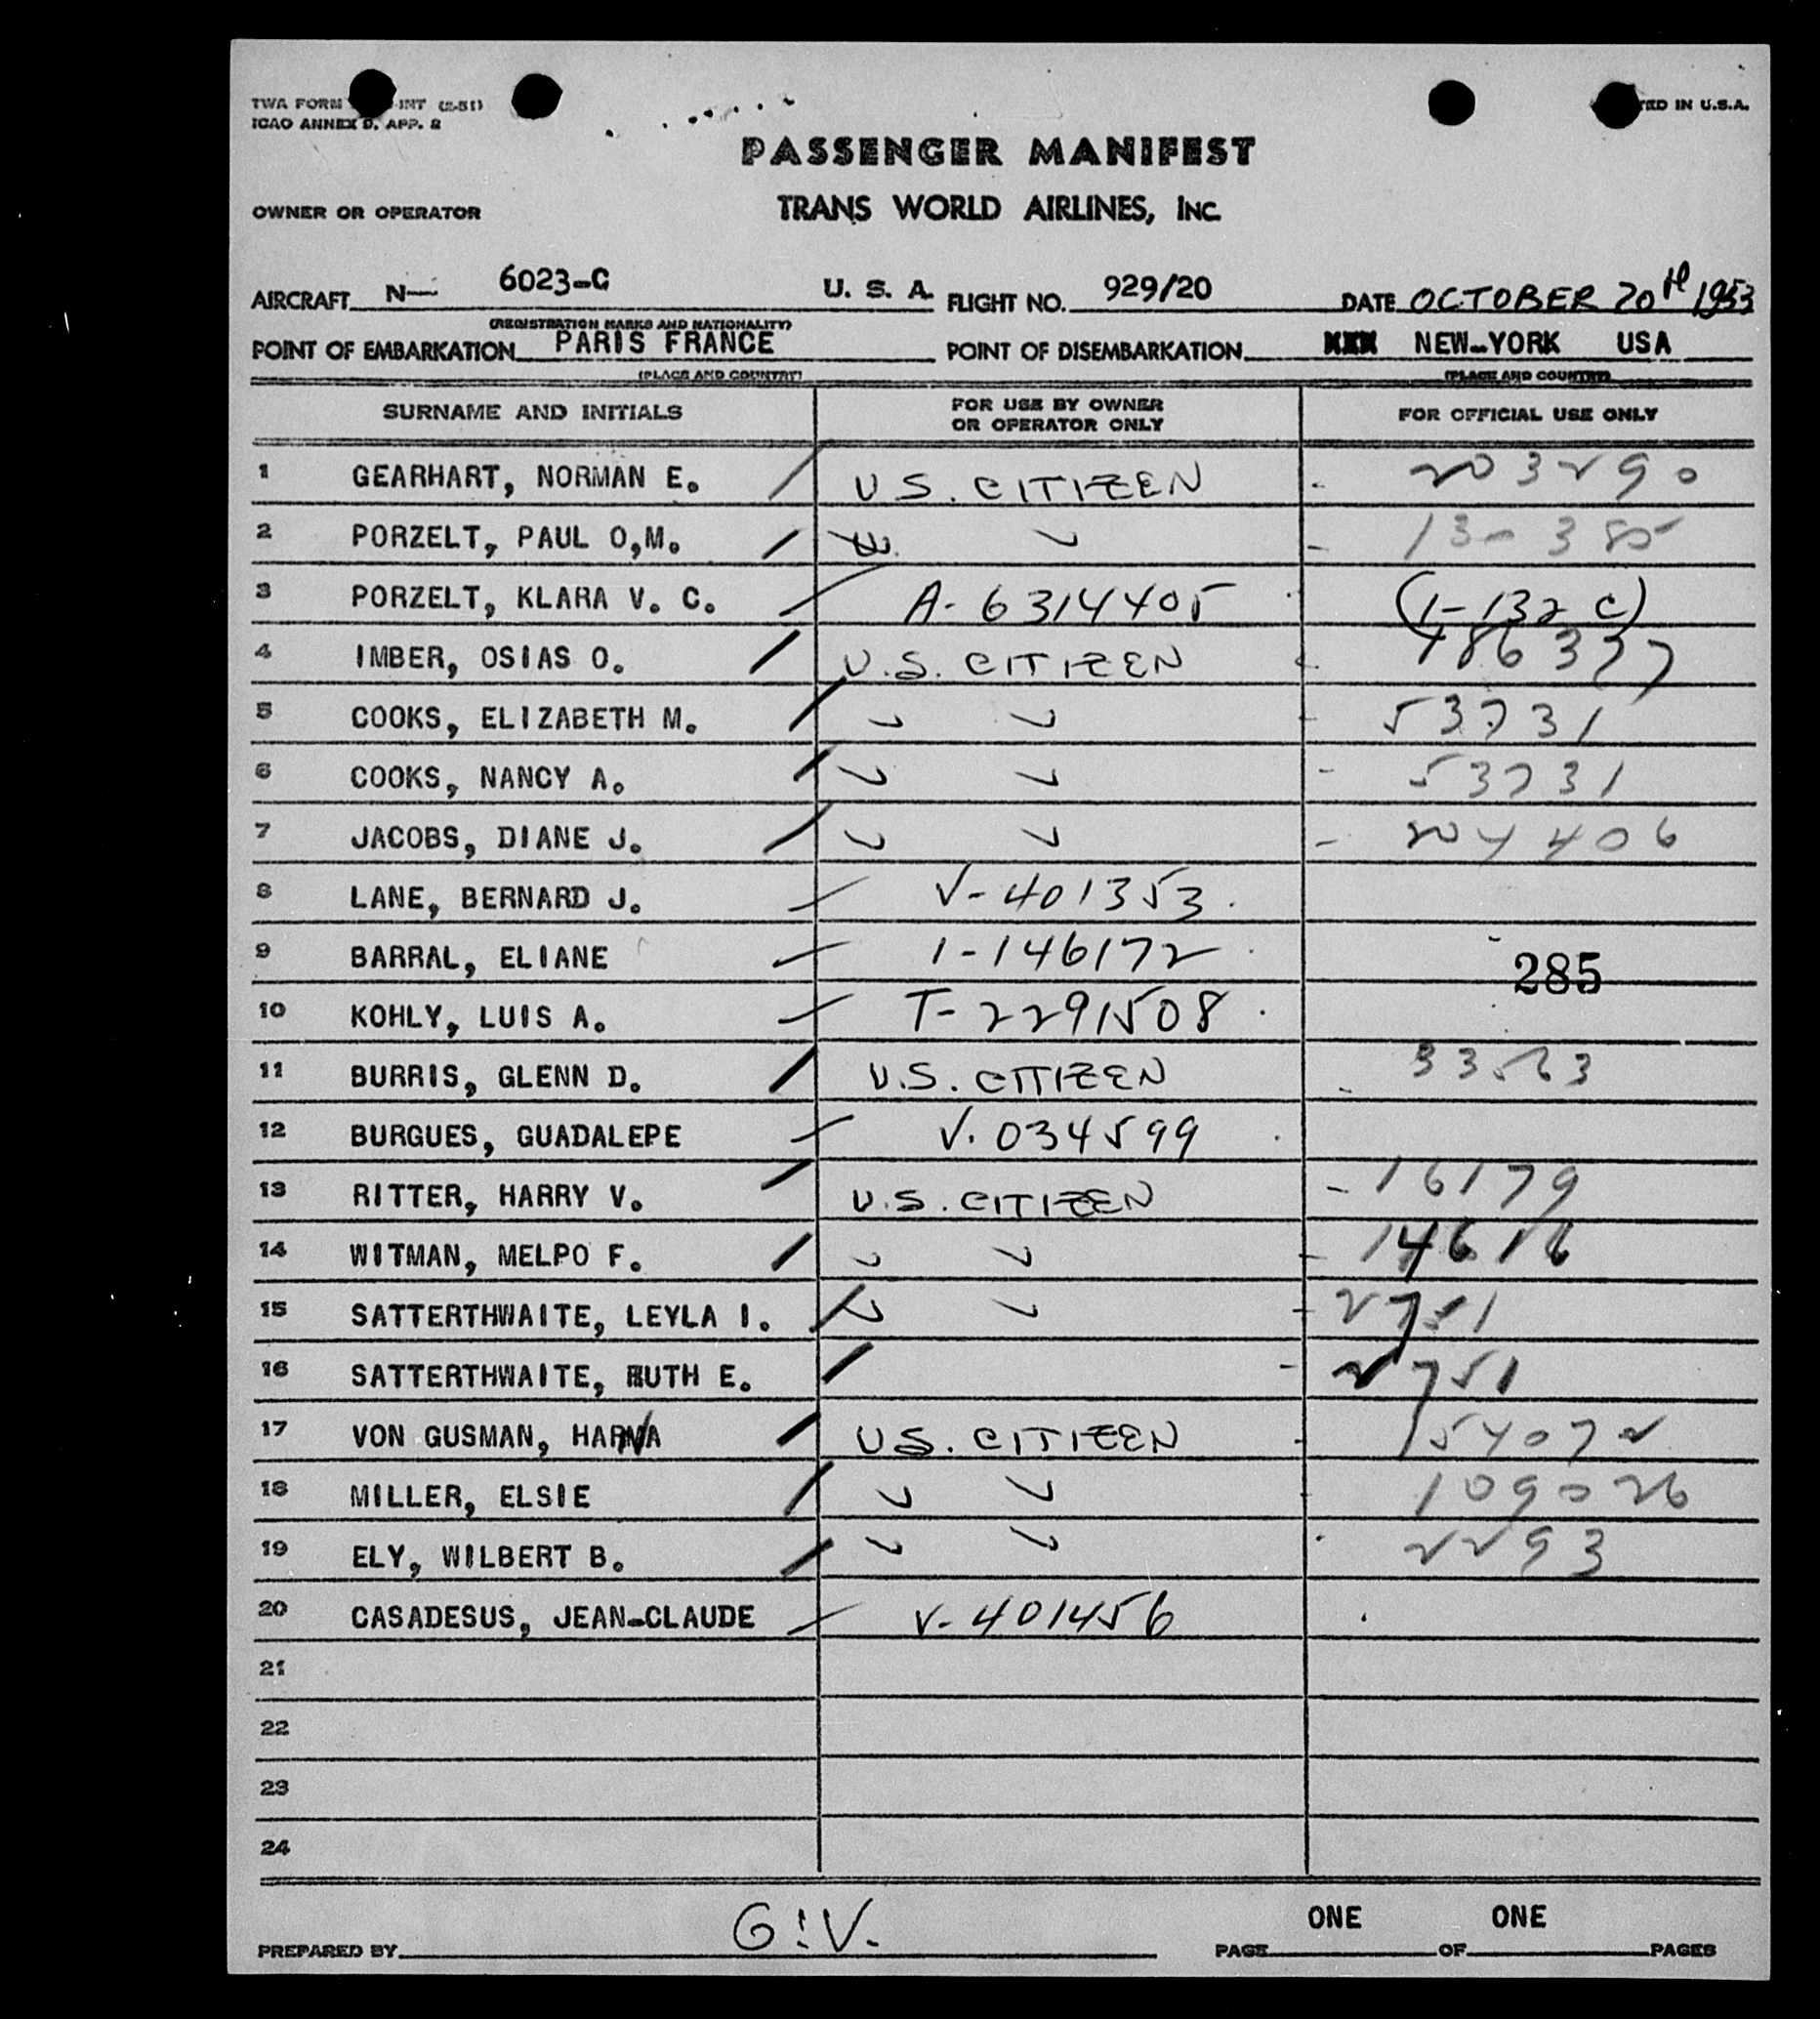 TWA FORM INT (2-51)
ICAO ANNEX 9, APP. 2
TED IN U.S.A.
PASSENGER MANIFEST
OWNER OR OPERATOR TRANS WORLD AIRLINES, INC.
AIRCRAFT N— 6023-C U. S. A. FLIGHT NO. 929/20 DATE OCTOBER 20th 1953
(REGISTRATION MARKS AND NATIONALITY)
POINT OF EMBARKATION PARIS FRANCE POINT OF DISEMBARKATION NEW-YORK USA
(PLACE AND COUNTRY) (PLACE AND COUNTRY)
SURNAME AND INITIALS FOR USE BY OWNER OR OPERATOR ONLY FOR OFFICIAL USE ONLY
1 GEARHART, NORMAN E. U S. CITIZEN 203290
2 PORZELT, PAUL O,M.
3 PORZELT, KLARA V. C. A-6314405 (1-132 c)
4 IMBER, OSIAS O. U.S. CITIZEN
5 COOKS, ELIZABETH M. 53731
6 COOKS, NANCY A. 53731
7 JACOBS, DIANE J. 204406
8 LANE, BERNARD J. V-401353
9 BARRAL, ELIANE 1-146172 285
10 KOHLY, LUIS A. T-2291508
11 BURRIS, GLENN D. U.S. CITIZEN
12 BURGUES, GUADALEPE V. 034599
13 RITTER, HARRY V. U.S. CITIZEN 16179
14 WITMAN, MELPO F. 14616
15 SATTERTHWAITE, LEYLA I. 2751
16 SATTERTHWAITE, RUTH E. 2751
17 VON GUSMAN, U.S. CITIZEN 154072
18 MILLER, ELSIE 109026
19 ELY, WILBERT B. 2293
20 CASADESUS, JEAN-CLAUDE V-401456
21
22
23
24
PREPARED BY G.V. PAGE ONE OF ONE PAGES